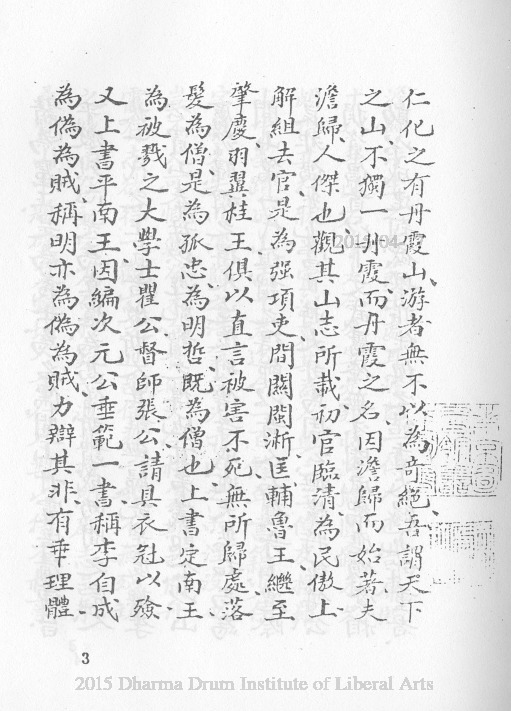 仁化之有丹霞山、游者無不以為奇絕、吾謂天下
之山、不獨一丹霞、而丹霞之名、因澹歸而始著、夫
澹歸、人傑也、觀其山志所載、初官臨清、為民傲上、
解組去官、是為强項吏、間關閩淅、匡輔魯王、繼至
肇慶、羽翼桂王、俱以直言被害不死、無所歸處、落
髮為僧、是為孤忠、為明哲、既為僧也、上書定南王、
為被戮之大學士瞿公、督師張公、請具衣冠以殮、
又上書平南王、因編次元公垂範一書、稱李自成
為偽為賊、稱明亦為偽為賊、力辯其非、有乖理體、
3
2015 Dharma Drum Institute of Liberal Arts